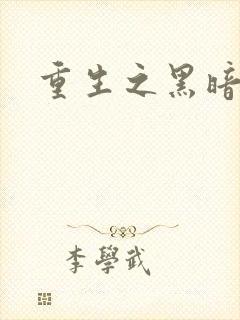 重生之黑暗
李學武